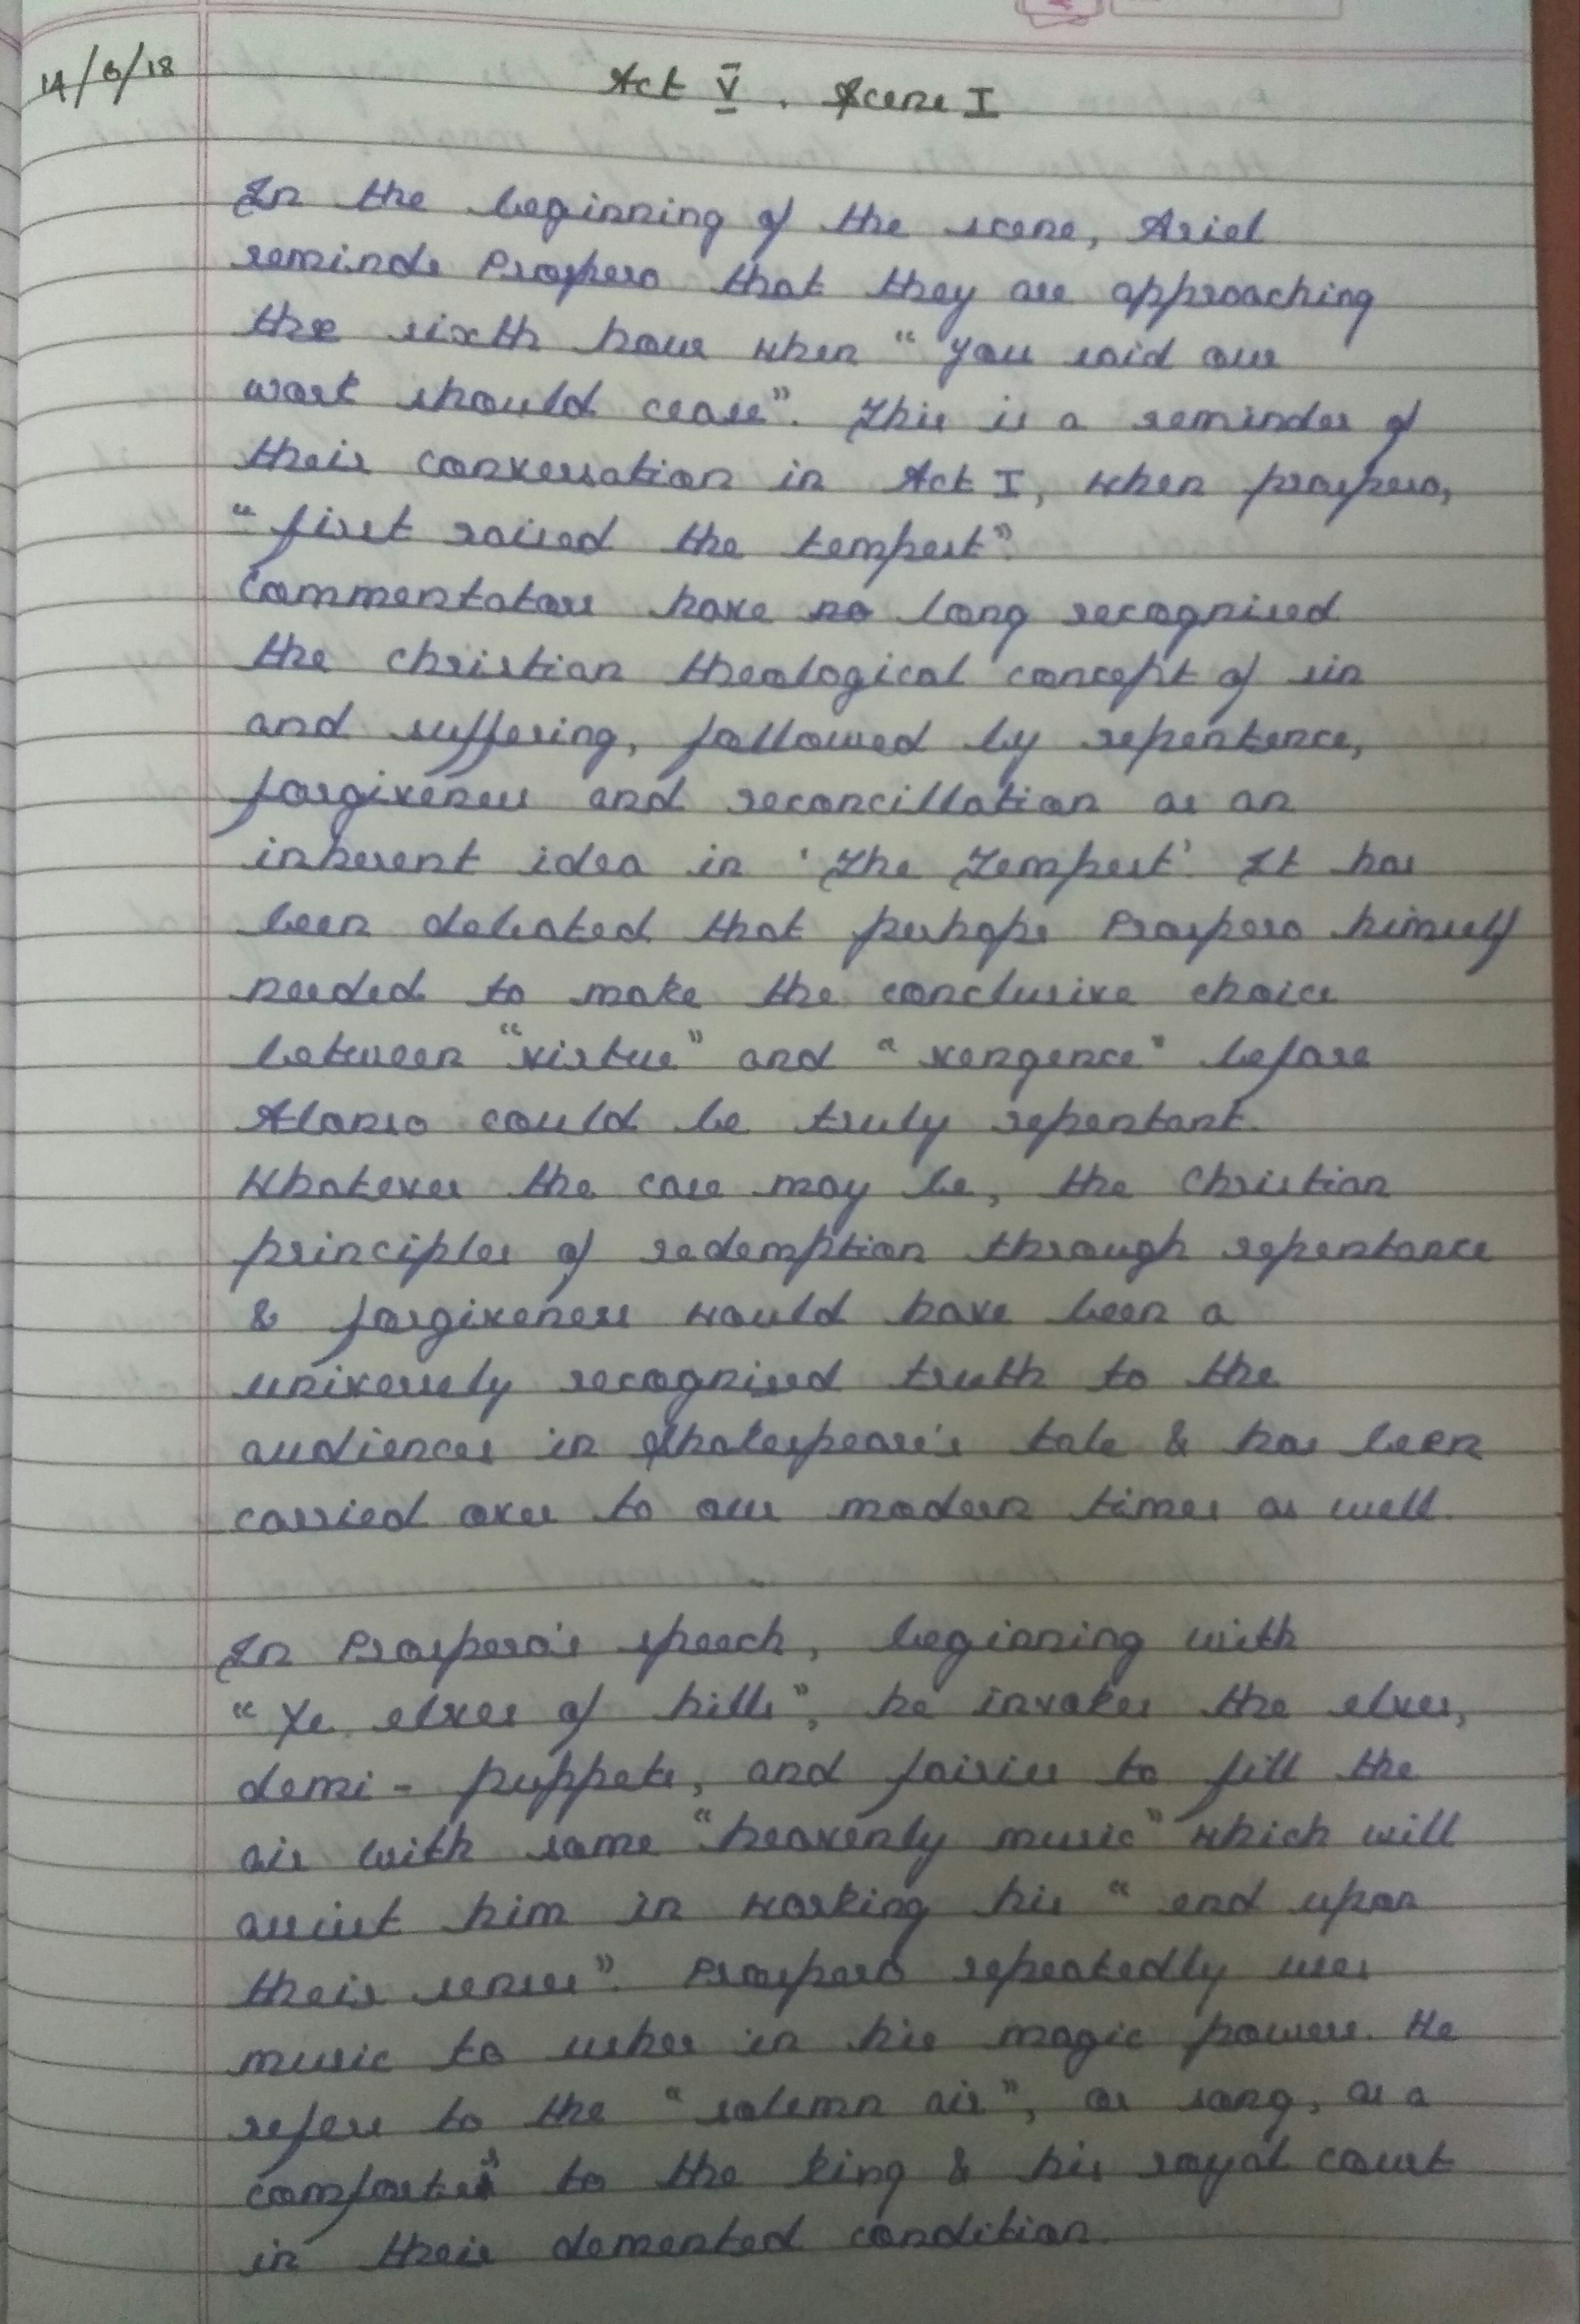 14/6/18
Act V. Scene I
In the beginning of the scene, Ariel
reminds Prospero that they are approaching
the sixth hour when "you said our
work should cease". This is a reminder of
their conversation in Act I, when prospero,
"first raised the tempest".
Commentators have no long recognised
the christian theological concept of sin
and suffering, followed by repentence,
forgiveness and reconcillation as an
inherent idea in 'The Tempest'. It has
been debated that perhaps Prospero himself
needed to make the conclusive choice
between "virtue" and "vengence" before
Alonso could be truly repentant.
Whatever the case may be, the Christian
principles of redemption through repentance
& forgiveness would have been a
universely recognised truth to the
audiences in Shakespeare's tale & has been
carried over to our modern times as well.
In Prospero's speech, beginning with
"Ye elves of hills", he invokes the elves,
demi-puppets, and fairies to fill the
air with some "heavenly music" which will
assist him in working his "end upon
their senses". Prospero repeatedly uses
music to usher in his magic powers. He
refers to the "solemn air", or song, as a
comforter" to the king & his royal court
in their demented condition.